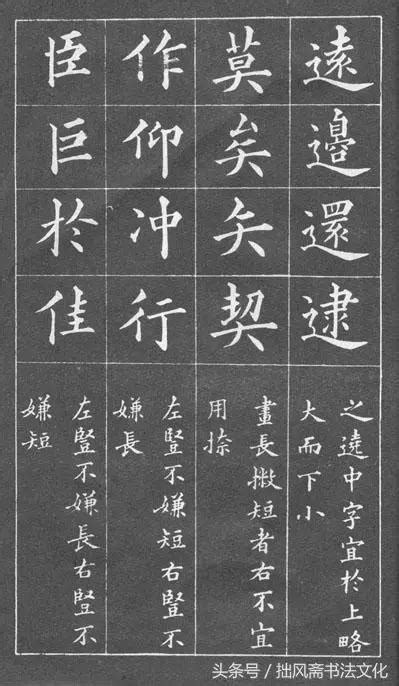 遠邊還逮
之遶中字宜於上略
大而下小
莫矣矢契
畫長撇短者右不宜
用捺
作仰冲行
左豎不嫌短右豎不
嫌長
臣巨於佳
左豎不嫌長右豎不
嫌短
头条号/拙风斋书法文化